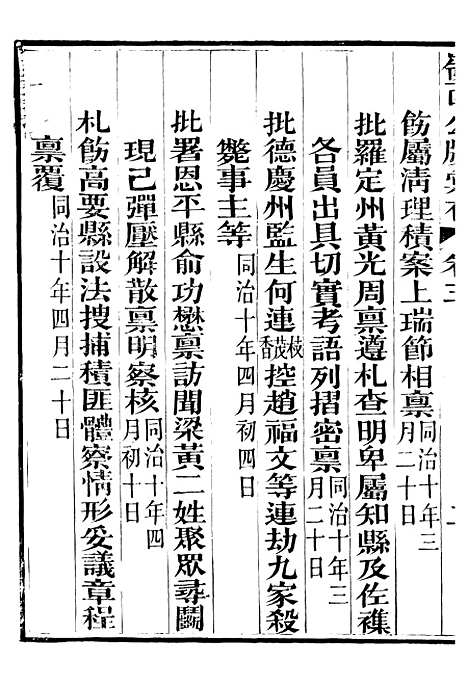 飭屬清理積案上瑞節相稟同治十年三月二十日
批羅定州黃光周稟遵札查明卑屬知縣及佐襍
各員出具切實考語列摺密稟同治十年三月二十日
批德慶州監生何連枝茂香控趙福文等連劫九家殺
斃事主等同治十年四月初四日
批署恩平縣俞功懋稟訪聞梁黃二姓聚眾尋鬬
現已彈壓解散稟明察核同治十年四月初十日
札飭高要縣設法搜捕積匪體察情形妥議章程
稟覆同治十年四月二十日